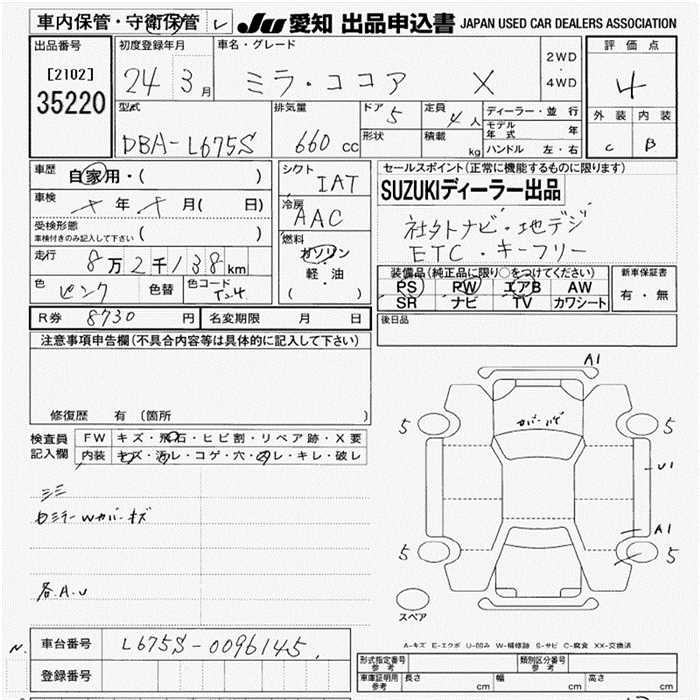 車内保管・守衛保管 レ
JU 愛知 出品申込書 JAPAN USED CAR DEALERS ASSOCIATION
出品番号
[2102]
35220
初度登録年月
24 3月
車名・グレード
ミラ・ココア X
2WD
4WD
評価点
4
外装 内装
C B
型式
DBA-L675S
排気量
660 cc
ドア
5
形状
定員
4人
積載
kg
ディーラー・並行
モデル年式 年
ハンドル 左・右
車歴
自家用・( )
車検
年 月( 日)
受検形態
車検付きのみ記入して下さい ( )
走行
8万2千138km
色
ピンク
色替
色コード
シフト
IAT
冷房
AAC
燃料
ガソリン
・
軽・油
( )
セールスポイント(正常に機能するものに限ります)
SUZUKIディーラー出品
社外ナビ・地デジ
ETC・キーフリー
装備品(純正品に限り○をつけてください)
PS PW エアB AW
SR ナビ TV カワシート
新車保証書
有・無
R券 8730 円
名変期限 月 日
後日品
注意事項申告欄(不具合内容等は具体的に記入して下さい)
修復歴 有(箇所 )
検査員
記入欄
FW キズ・飛石・ヒビ割・リペア跡・X要
内装 キズ・汚レ・コゲ・穴・スレ・キレ・破レ
ミミ
各A.U
A1
5
5
U1
A1
5
5
スペア
車台番号
L675S-0096145
登録番号
A-キズ E-エクボ U-凹み W-補修跡 S-サビ C-腐食 XX-交換済
形式指定番号
参考
類別区分番号
参考
車庫証明用
参考
長さ cm
幅 cm
高さ cm